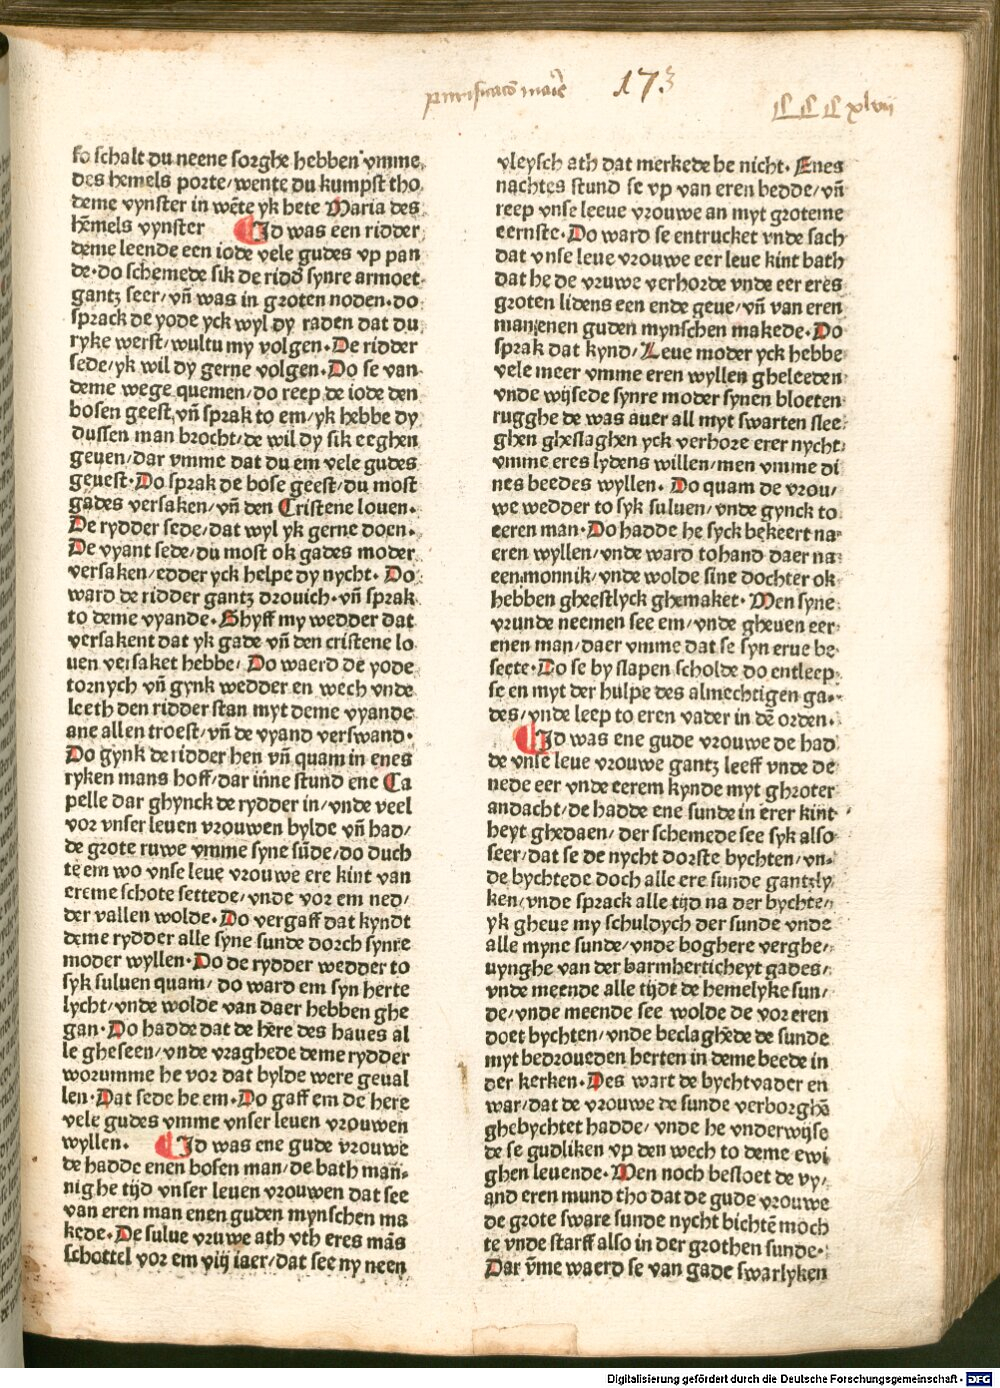 purificatõ marie 173
CCCxlvii
so schalt du neene sorghe hebben vmme
des hemels porte/wente du kumpst tho
deme vynster in wẽte yk hete Maria des
hẽmels vynster Id was een ridder
deme leende een iode vele gudes vp pan
de·do schemede sik de riddẽ synre armoet
gantz seer/vñ was in groten noden·do
sprack de yode yck wyl dy raden dat du
ryke werst/wultu my volgen·De ridder
sede/yk wil dy gerne volgen·Do se van
deme wege quemen/do reep de iode den
bosen geest/vñ sprak to em/yk hebbe dy
dussen man brocht/de wil dy sik eeghen
geuen/dar vmme dat du em vele gudes
geuest·Do sprak de bose geest/du most
gades versaken/vñ den Cristene louen·
De rydder sede/dat wyl yk gerne doen·
De vyant sede/du most ok gades moder
versaken/edder yck helpe dy nycht·Do
ward de ridder gantz drouich·vñ sprak
to deme vyande·Ghyff my wedder dat
versakent dat yk gade vñ den cristene lo
uen versaket hebbe·Do waerd de yode
tornych vñ gynk wedder en wech vnde
leeth den ridder stan myt deme vyande
ane allen troest/vñ de vyand verswand·
Do gynk de ridder hen vñ quam in enes
ryken mans hoff/dar inne stund ene Ca
pelle dar ghynck de rydder in/vnde veel
vor vnser leuen vrouwen bylde vñ had/
de grote ruwe vmme syne sũde/do duch
te em wo vnse leue vrouwe ere kint van
ereme schote settede/vnde vor em ned/
der vallen wolde·Do vergaff dat kyndt
deme rydder alle syne sunde dorch synre
moder wyllen·Do de rydder wedder to
syk suluen quam/do ward em syn herte
lycht/vnde wolde van daer hebben ghe
gan·Do hadde dat de hẽre des haues al
le gheseen/vnde vraghede deme rydder
worumme he vor dat bylde were geual
len·Dat sede he em·Do gaff em de here
vele gudes vmme vnser leuen vrouwen
wyllen. Id was ene gude vrouwe
de hadde enen bosen man/de bath mañ-
nighe tijd vnser leuen vrouwen dat see
van eren man enen guden mynschen ma
kede·De sulue vruwe ath vth eres mãs
schottel vor em viij iaer/dat see ny neen
vleysch ath dat merkede he nicht·Enes
nachtes stund se vp van eren bedde/vñ
reep vnse leeue vrouwe an myt groteme
eernste·Do ward se entrucket vnde sach
dat vnse leue vrouwe eer leue kint bath
dat he de vruwe verhorde vnde eer eres
groten lidens een ende geue/vñ van eren
man enen guden mynschen makede·Do
sprak dat kynd/Leue moder yck hebbe
vele meer vmme eren wyllen gheleeden
vnde wijsede synre moder synen bloeten
rugghe de was auer all myt swarten slee
ghen gheslaghen yck verhore erer nycht
vmme eres lydens willen/men vmme di
nes beedes wyllen. Do quam de vrou/
we wedder to syk suluen/vnde gynck to
eeren man·Do hadde he syck bekeert na
eren wyllen/vnde ward tohand daer na
een monnik/vnde wolde sine dochter ok
hebben gheestlyck ghemaket·Men syne
vrunde neemen see em/vnde gheuen eer
enen man/daer vmme dat se syn erue be-
seete·Do se by slapen scholde do entleep
se en myt der hulpe des almechtigen ga-
des/vnde leep to eren vader in dẽ orden·
Id was ene gude vrouwe de had
de vnse leue vrouwe gantz leeff vnde de
nede eer vnde eerem kynde myt ghroter
andacht/de hadde ene sunde in erer kint
heyt ghedaen/der schemede see syk also
seer/dat se de nycht dorste bychten/vn-
de bychtede doch alle ere sunde gantzly
ken/vnde sprack alle tijd na der bychte/
yk gheue my schuldych der sunde vnde
alle myne sunde/vnde boghere verghe/
uynghe van der barmherticheyt gades/
vnde meende alle tijdt de hemelyke sun/
de/vnde meende see wolde de vor eren
doet bychten/vnde beclaghede de sunde
myt bedroueden herten in deme beede in
der kerken·Des wart de bychtvader en
war/dat de vrouwe de sunde verborghẽ
ghebychtet hadde/vnde he vnderwijse
de se gudliken vp den wech to deme ewi
ghen leuende·Men noch besloet de vy/
and eren mund tho dat de gude vrouwe
de grote sware sunde nycht bichtẽ moch
te vnde starff also in der grothen sunde·
Dar vm̃e waerd se van gade swarlyken
Digitalisierung gefördert durch die Deutsche Forschungsgemeinschaft - DFG